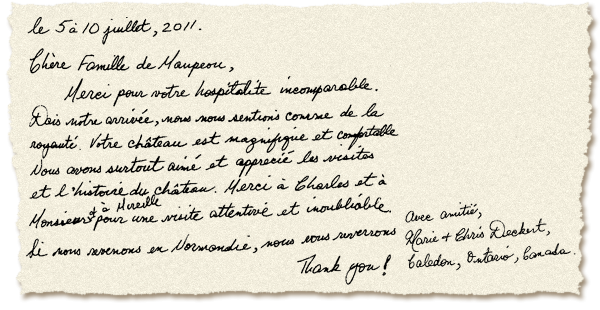 le 5 à 10 juillet, 2011.
Chère Famille de Maupeou,
Merci pour votre hospitalité incomparable.
Dais notre arrivée, nous nous sentions comme de la
royauté. Votre château est magnifique et comfortable
Nous avons surtout aimé et apprecié les visites
et l'histoire du château. Merci à Charles et à
et à Mireille
Monsieur pour une visite attentive et inoubliable.
Si nous revenons en Normandie, nous vous reverrons
Thank you!
avec amitié,
Marie + Chris Deckert,
Caledon, Ontario, Canada.